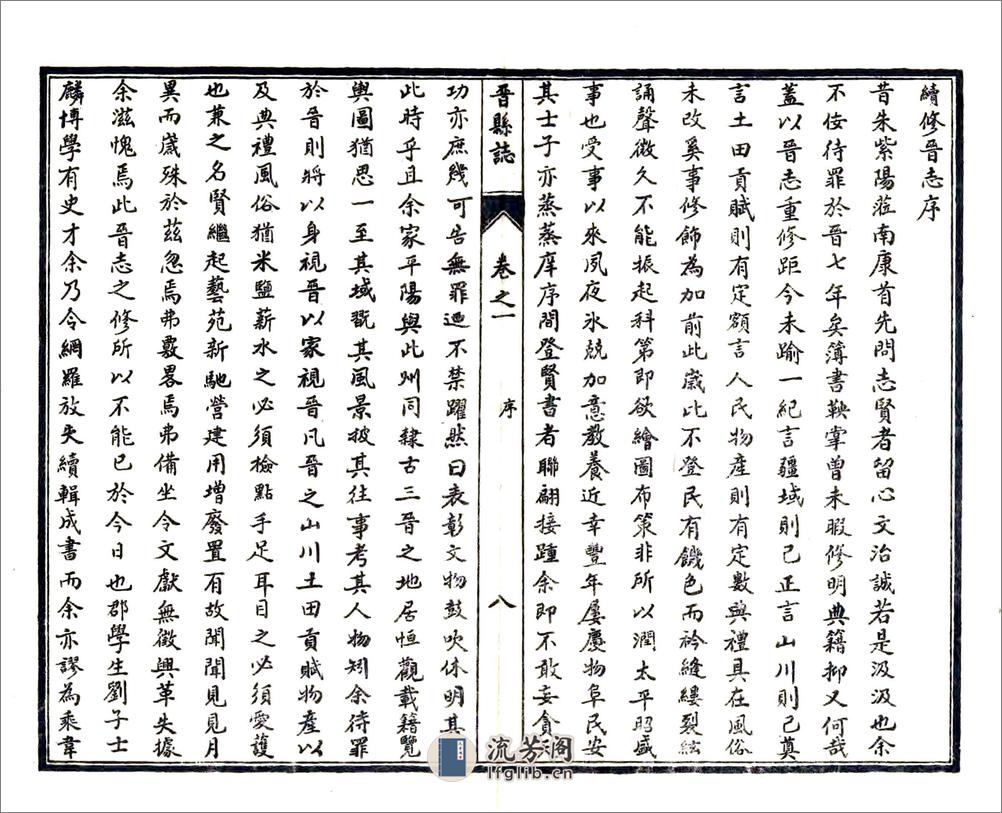 續修晉志序
昔朱紫陽蒞南康首先問志賢者留心文治誠若是汲汲也余
不佞待罪於晉七年矣簿書鞅掌曾未暇修明典籍抑又何哉
蓋以晉志重修距今未踰一紀言疆域則已正言山川則已奠
言土田貢賦則有定額言人民物產則有定數與禮具在風俗
未改奚事修飾為加前此歲此不登民有饑色而衿縫縷裂絃
誦聲微久不能振起科第即欲繪圖布策非所以潤太平昭盛
事也受事以來夙夜氷兢加意教養近幸豐年屢慶物阜民安
其士子亦蒸蒸庠序間登賢書者聯翩接踵余即不敢妄貪天
晉縣誌 卷之一 序 八
功亦庶幾可告無罪迺不禁躍然曰表彰文物鼓吹休明其
此時乎且余家平陽與此州同隸古三晉之地居恒觀載籍覽
輿圖猶思一至其域翫其風景披其往事考其人物矧余待罪
於晉則將以身視晉以家視晉凡晉之山川土田貢賦物產以
及典禮風俗猶米鹽薪水之必須檢點手足耳目之必須愛護
也兼之名賢繼起藝苑新馳營建用增廢置有故聞聞見見月
異而歲殊於茲忽焉弗覈畧焉弗備坐令文獻無徵興革失據
余滋愧焉此晉志之修所以不能已於今日也郡學生劉子士
麟博學有史才余乃令網羅放失續輯成書而余亦謬為乘韋
流芳阁
lfglib.cn